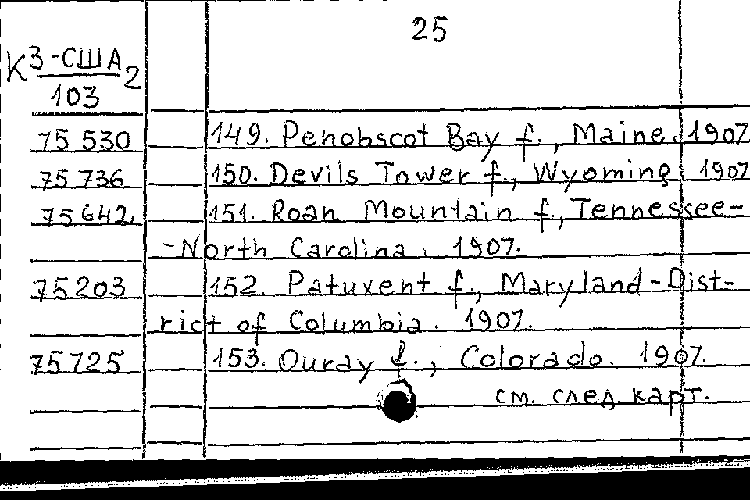 25
К 3-США 2
103
75 530 149. Penobscot Bay f., Maine. 1907
75 736 150. Devils Tower f., Wyoming. 1907
75 642. 151. Roan Mountain f., Tennessee-
-North Carolina. 1907.
75203 152. Patuxent f., Maryland-Dist-
rict of Columbia. 1907.
75725 153. Ouray f., Colorado. 1907.
см. след карт.